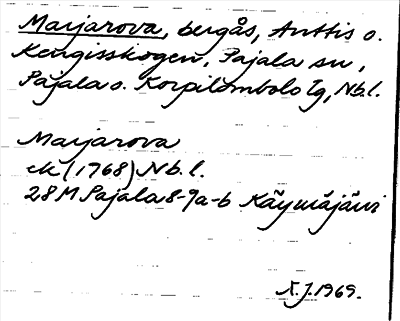 Marjarova, bergås, Anttis o.
Kengisskogen, Pajala sn,
Pajala o. Korpilombolo lg, Nb.l.
Marjarova
ek (1768) Nb.l.
28M Pajala 8-9a-b Käymäjärvi
N.J. 1969.